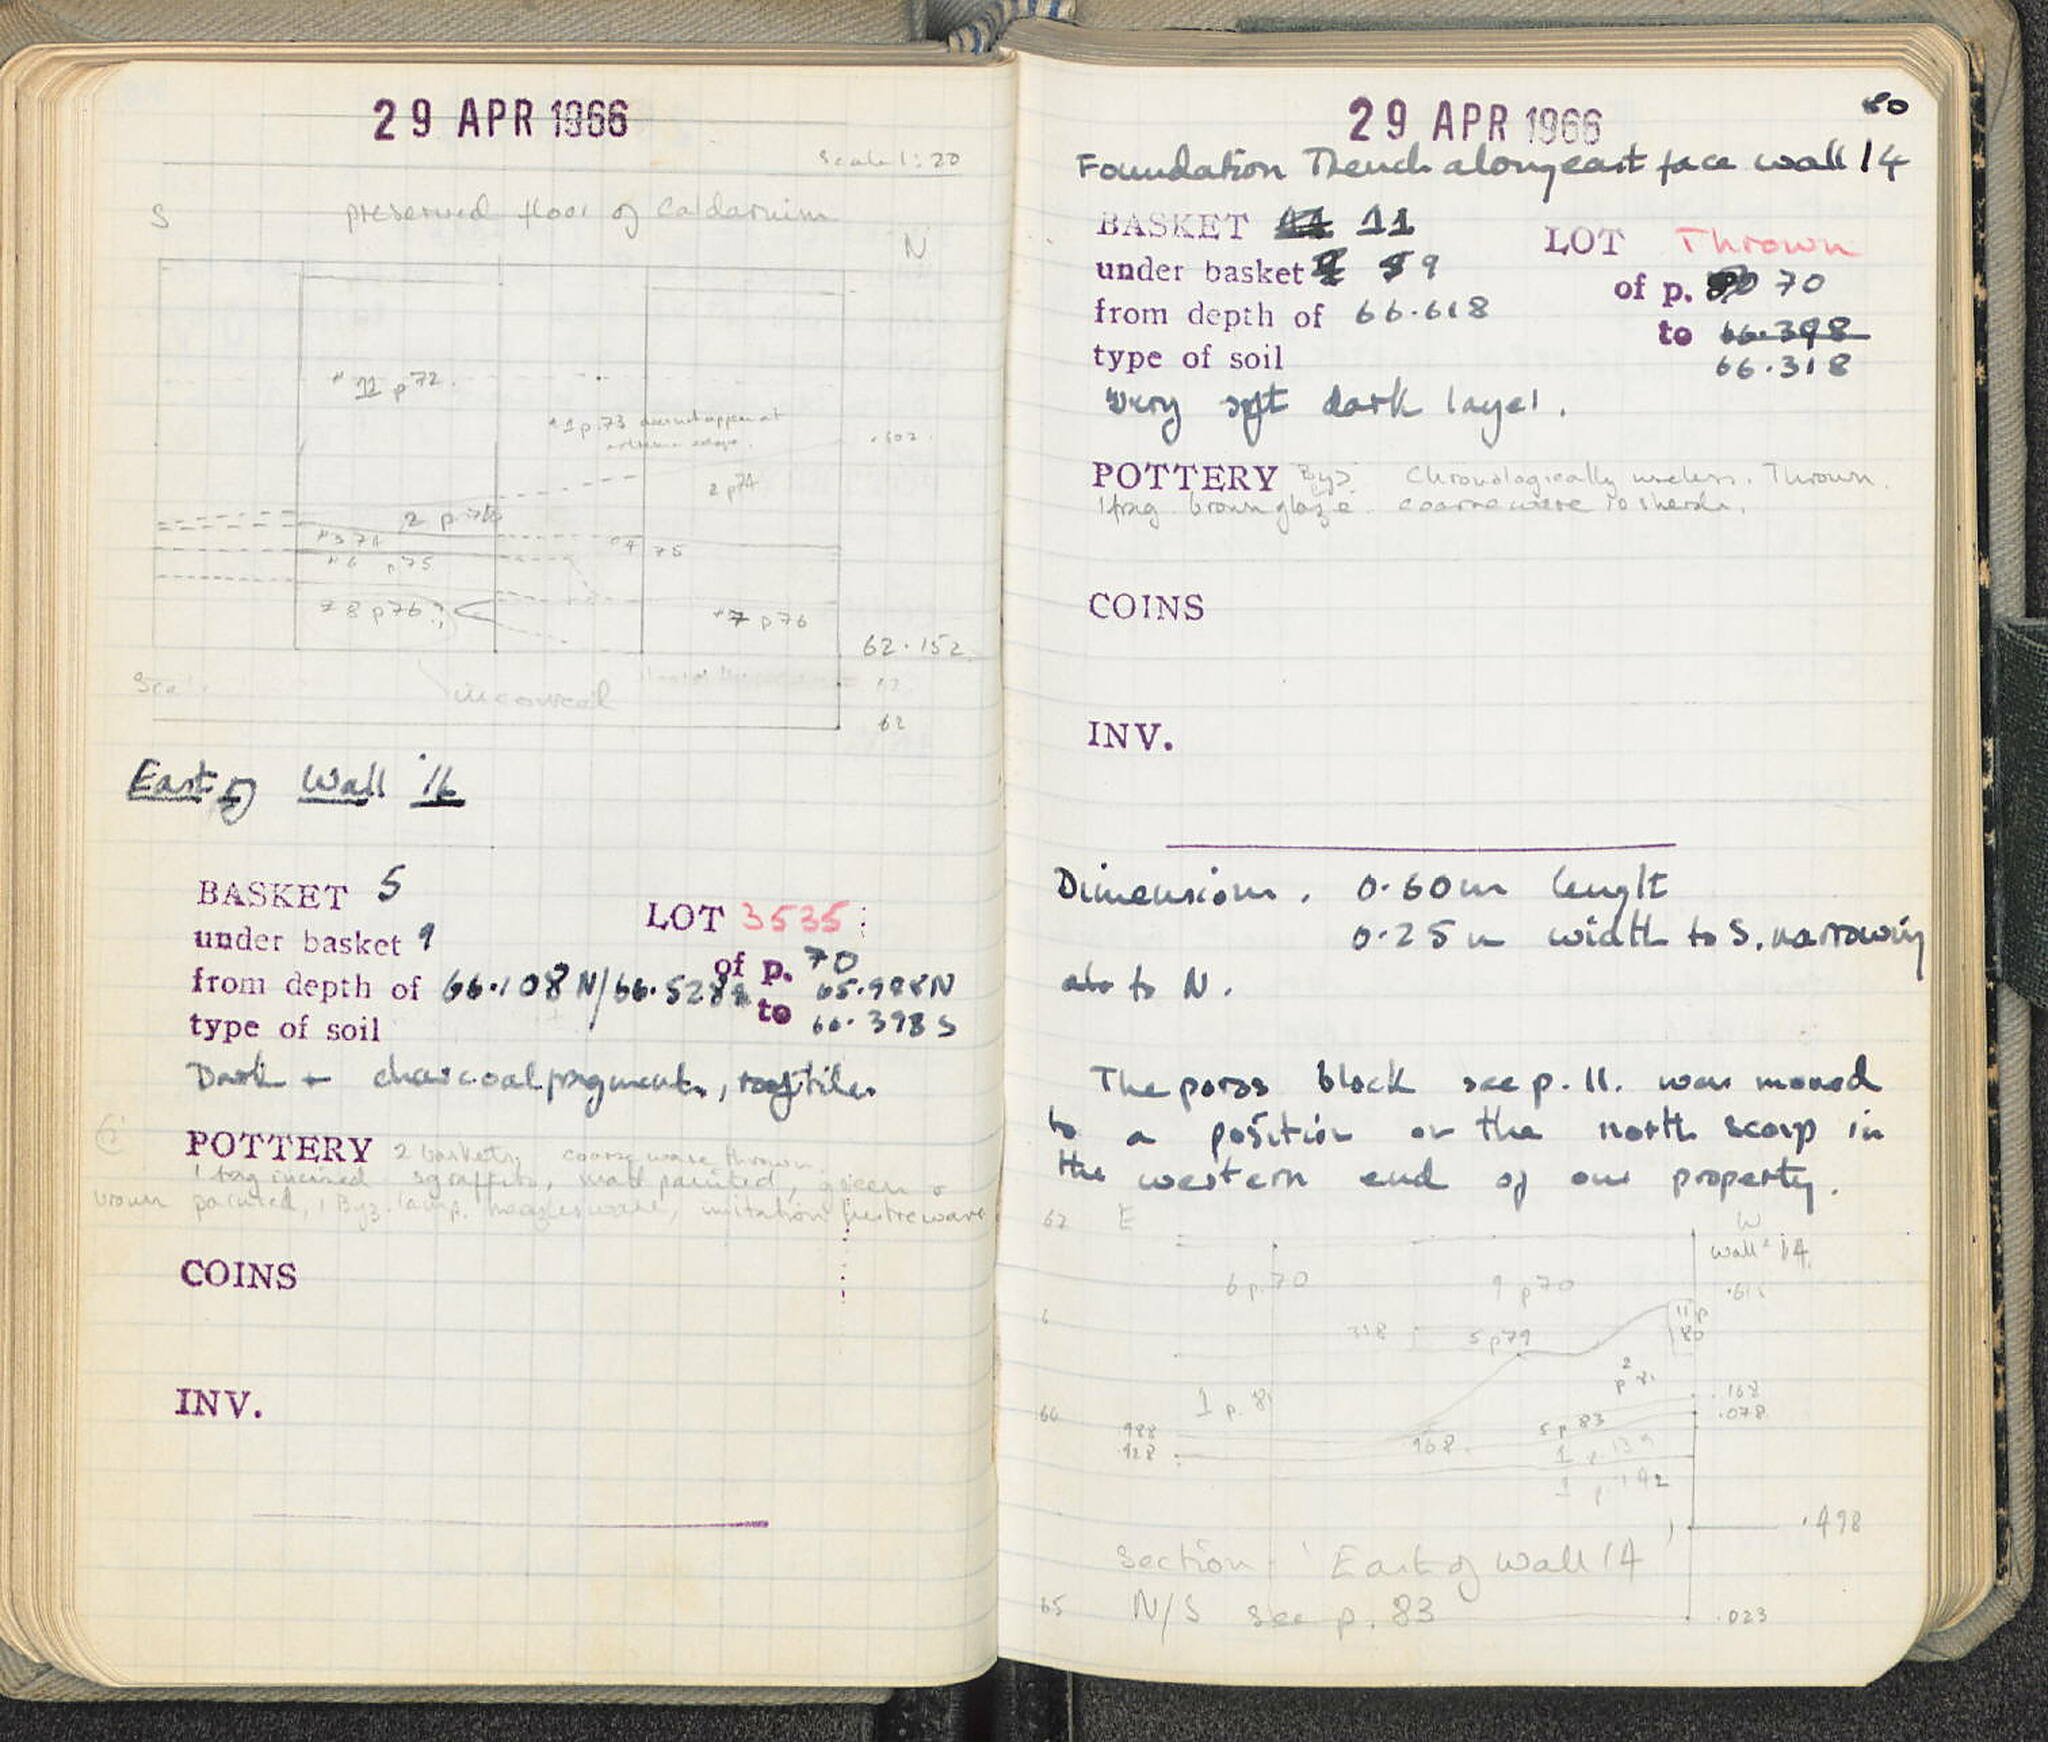 29 APR 1966
scale 1:20
S preserved floor of Caldarium
N
11 p 72.
1 p. 73 does not appear at
.502
2 p 74
2 p.
3 74
4 75
6 p 75
8 p 76 ?
7 p 76
62.152
62
East of Wall 14
BASKET 5
LOT 3535
under basket 9
of p. 70
from depth of 66.108 N/66.528 S
to 65.988 N
66.398 S
type of soil
Dark + charcoal fragments, rooftiles
POTTERY 2 baskets, coarse ware thrown.
1 frag incised sgraffito, matt painted, green &
brown painted, 1 Byz. lamp. measles ware, imitation lustre ware
COINS
INV.
29 APR 1966
80
Foundation Trench along east face wall 14
BASKET 11 11
LOT Thrown
under basket 9
of p. 70
from depth of 66.618
to 66.398
66.318
type of soil
Very soft dark layer.
POTTERY Byz. Chronologically useless. Thrown.
1 frag brown glaze. coarse ware 10 sherds.
COINS
INV.
Dimensions. 0.60m lenght
0.25m width to S, narrowing
to N.
The poros block see p. 11. was moved
to a position on the north scarp in
the western end of our property.
67 E W
wall 14
6 p. 70
9 p 70
.618
11 p
80
318
5 p 79
2
p 81
1 p. 81
.168
66
.078
.988
5 p 83
.928
968
1 p. 139
1 p 142
.498
Section East of Wall 14
65 N/S see p. 83
.023